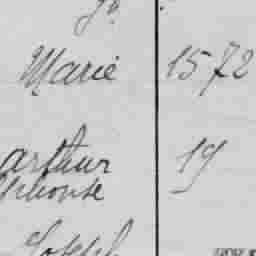 Marie 1572
arthur 19
Alphonse
Joseph